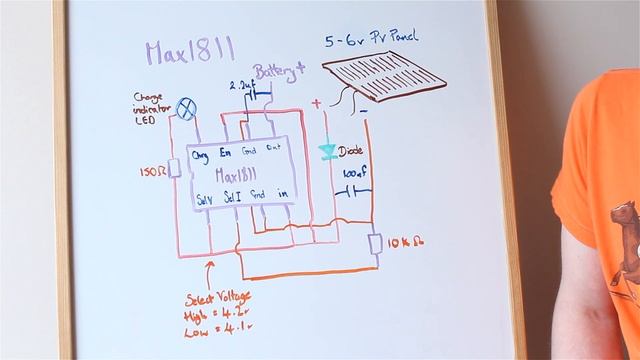 Max1811
5-6v Pv Panel
Battery+
2.2uf
Charge
indicator
LED
+
-
Chrg En Gnd Out
Diode
150Ω
Max1811
100uf
SelV Sel I Gnd in
10kΩ
Select Voltage
High = 4.2v
Low = 4.1v